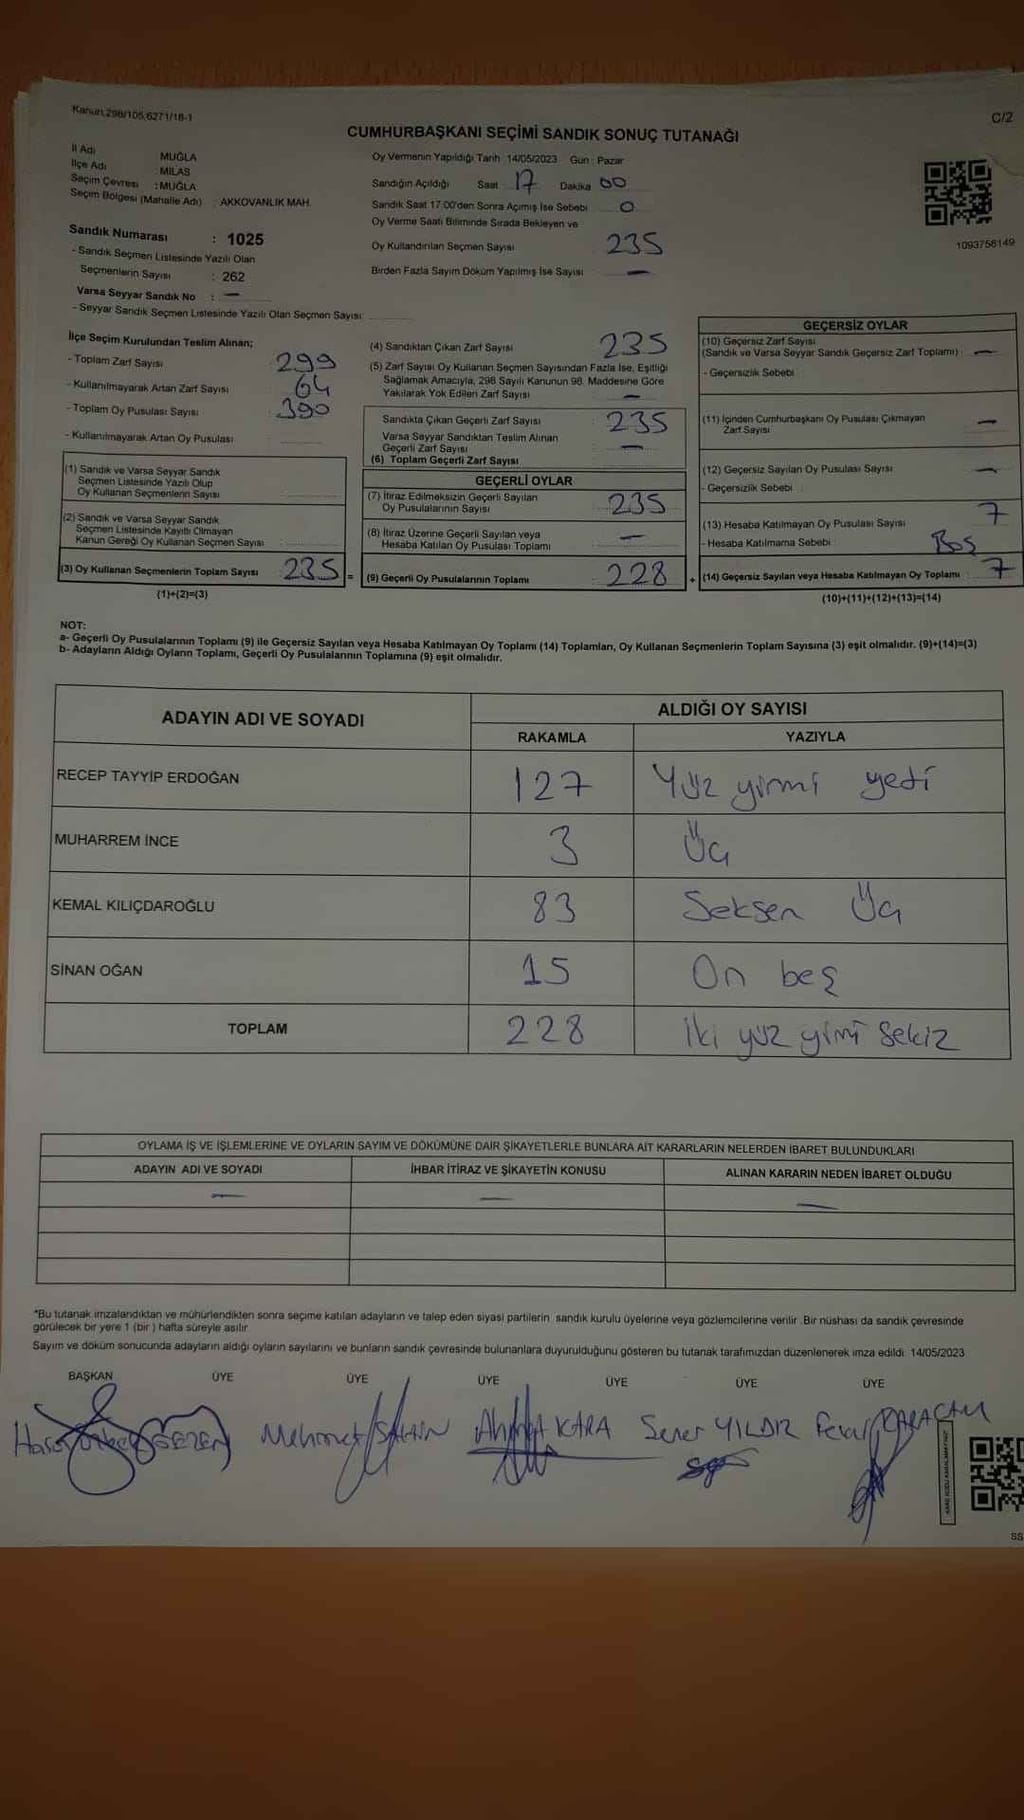 Kanun 298/105,6271/18-1
C/2
CUMHURBAŞKANI SEÇİMİ SANDIK SONUÇ TUTANAĞI
İl Adı : MUĞLA
İlçe Adı : MİLAS
Seçim Çevresi : MUĞLA
Seçim Bölgesi (Mahalle Adı) : AKKOVANLIK MAH.
Sandık Numarası : 1025
- Sandık Seçmen Listesinde Yazılı Olan
Seçmenlerin Sayısı : 262
Varsa Seyyar Sandık No : —
- Seyyar Sandık Seçmen Listesinde Yazılı Olan Seçmen Sayısı
Oy Vermenin Yapıldığı Tarih 14/05/2023 Gün : Pazar
Sandığın Açıldığı Saat 17 Dakika 00
Sandık Saat 17:00'den Sonra Açımış İse Sebebi 0
Oy Verme Saati Bitiminde Sırada Bekleyen ve
Oy Kullandırılan Seçmen Sayısı 235
Birden Fazla Sayım Döküm Yapılmış İse Sayısı —
1093758149
İlçe Seçim Kurulundan Teslim Alınan;
- Toplam Zarf Sayısı : 299
- Kullanılmayarak Artan Zarf Sayısı : 64
- Toplam Oy Pusulası Sayısı : 390
- Kullanılmayarak Artan Oy Pusulası
(1) Sandık ve Varsa Seyyar Sandık
Seçmen Listesinde Yazılı Olup
Oy Kullanan Seçmenlerin Sayısı
(2) Sandık ve Varsa Seyyar Sandık
Seçmen Listesinde Kayıtlı Olmayan
Kanun Gereği Oy Kullanan Seçmen Sayısı
(3) Oy Kullanan Seçmenlerin Toplam Sayısı 235 =
(1)+(2)=(3)
(4) Sandıktan Çıkan Zarf Sayısı 235
(5) Zarf Sayısı Oy Kullanan Seçmen Sayısından Fazla İse, Eşitliği
Sağlamak Amacıyla, 298 Sayılı Kanunun 98. Maddesine Göre
Yakılarak Yok Edilen Zarf Sayısı —
Sandıkta Çıkan Geçerli Zarf Sayısı 235
Varsa Seyyar Sandıktan Teslim Alınan
Geçerli Zarf Sayısı —
(6) Toplam Geçerli Zarf Sayısı
GEÇERLİ OYLAR
(7) İtiraz Edilmeksizin Geçerli Sayılan
Oy Pusulalarının Sayısı 235
(8) İtiraz Üzerine Geçerli Sayılan veya
Hesaba Katılan Oy Pusulası Toplamı —
(9) Geçerli Oy Pusulalarının Toplamı : 228 +
GEÇERSİZ OYLAR
(10) Geçersiz Zarf Sayısı
(Sandık ve Varsa Seyyar Sandık Geçersiz Zarf Toplamı) : —
- Geçersizlik Sebebi
(11) İçinden Cumhurbaşkanı Oy Pusulası Çıkmayan
Zarf Sayısı —
(12) Geçersiz Sayılan Oy Pusulası Sayısı —
- Geçersizlik Sebebi
(13) Hesaba Katılmayan Oy Pusulası Sayısı 7
- Hesaba Katılmama Sebebi : Boş
(14) Geçersiz Sayılan veya Hesaba Katılmayan Oy Toplamı : 7
(10)+(11)+(12)+(13)=(14)
NOT:
a- Geçerli Oy Pusulalarının Toplamı (9) ile Geçersiz Sayılan veya Hesaba Katılmayan Oy Toplamı (14) Toplamları, Oy Kullanan Seçmenlerin Toplam Sayısına (3) eşit olmalıdır. (9)+(14)=(3)
b- Adayların Aldığı Oyların Toplamı, Geçerli Oy Pusulalarının Toplamına (9) eşit olmalıdır.
ADAYIN ADI VE SOYADI ALDIĞI OY SAYISI
RAKAMLA YAZIYLA
RECEP TAYYİP ERDOĞAN 127 Yüz yirmi yedi
MUHARREM İNCE 3 Üç
KEMAL KILIÇDAROĞLU 83 Seksen Üç
SİNAN OĞAN 15 On beş
TOPLAM 228 İki yüz yimi sekiz
OYLAMA İŞ VE İŞLEMLERİNE VE OYLARIN SAYIM VE DÖKÜMÜNE DAİR ŞİKAYETLERLE BUNLARA AİT KARARLARIN NELERDEN İBARET BULUNDUKLARI
ADAYIN ADI VE SOYADI İHBAR İTİRAZ VE ŞİKAYETİN KONUSU ALINAN KARARIN NEDEN İBARET OLDUĞU
— — —
*Bu tutanak imzalandıktan ve mühürlendikten sonra seçime katılan adayların ve talep eden siyasi partilerin sandık kurulu üyelerine veya gözlemcilerine verilir. Bir nüshası da sandık çevresinde
görülecek bir yere 1 (bir) hafta süreyle asılır.
Sayım ve döküm sonucunda adayların aldığı oyların sayılarını ve bunların sandık çevresinde bulunanlara duyurulduğunu gösteren bu tutanak tarafımızdan düzenlenerek imza edildi. 14/05/2023
BAŞKAN ÜYE ÜYE ÜYE ÜYE ÜYE ÜYE
GEZEN Mehmet ŞAHİN Ahmet KARA Sener YILDIZ KARAÇAM
SS